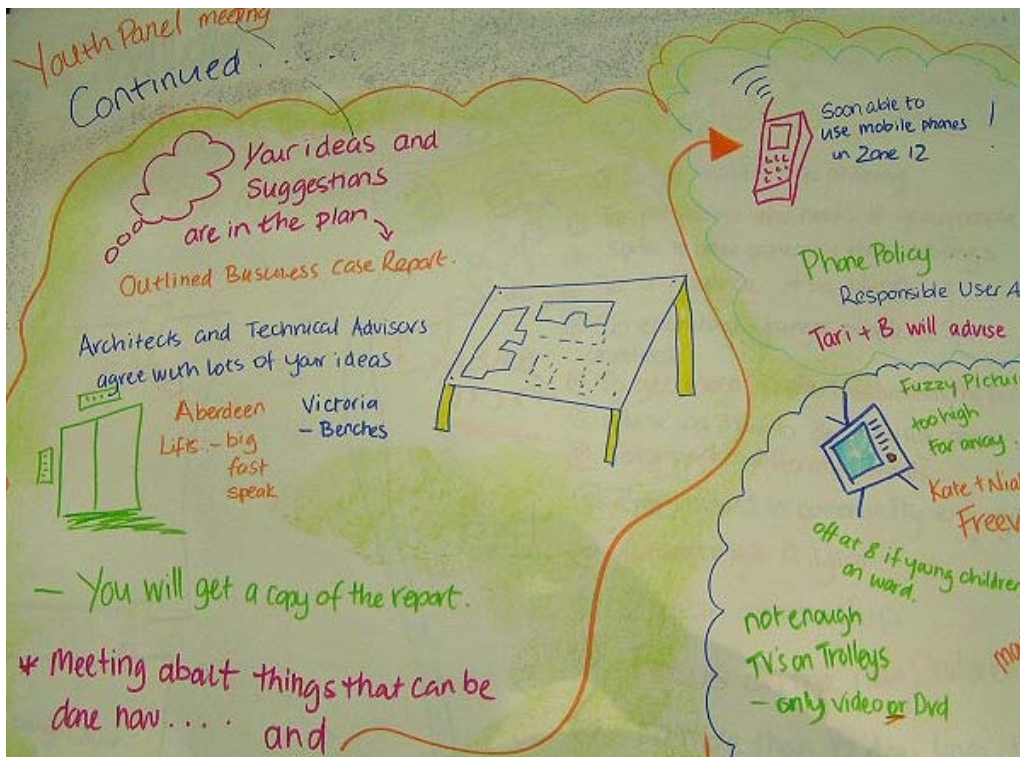 Youth Panel meeting
Continued . . . . . .
Your ideas and
suggestions
are in the plan
Outlined Business Case Report.
Architects and Technical Advisors
agree with lots of your ideas
Aberdeen
Lifts..- big
fast
speak
Victoria
- Benches
- You will get a copy of the report.
* Meeting about things that can be
done now....
and
Soon able to
use mobile phones !
in Zone 12
Phone Policy ....
Responsible User A
Tari + B will advise
Fuzzy Picture
too high
Far away .
Kate + Nial
Freev
off at 8 if young children
on ward.
not enough
TV's on Trolleys
- only video or Dvd